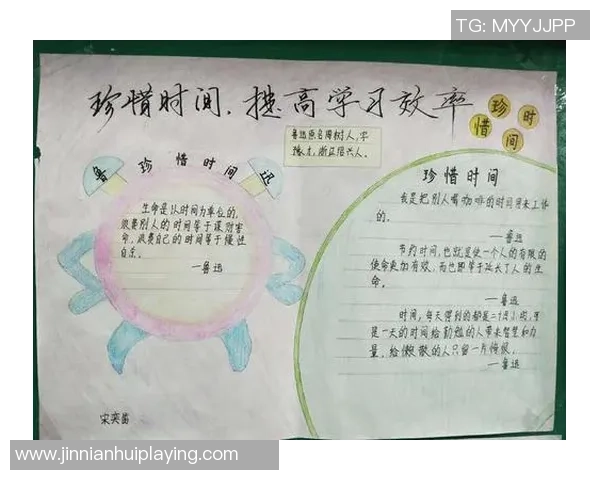 TG: MYYJJPP
珍惜时间，提高学习效率
珍惜时间
鲁迅原名周树人，字
豫才，浙江绍兴人。
鲁 珍惜时间 迅
生命是以时间为单位的，
浪费别人的时间等于谋财害
命，浪费自己的时间等于慢性
自杀。
—鲁迅
珍惜时间
我是把别人喝咖啡的时间用来工作
的。
—鲁迅
节约时间，也就是使一个人的有限的
使命更加有效，而也即等于延长了人的生
命。
—鲁迅
时间，每天得到的都是二十四小时，可
是一天的时间给勤勉的人带来智慧和力
量，给懒散的人只留一片悔恨。
—鲁迅
宋奕笛
www.jinnianhuiplaying.com